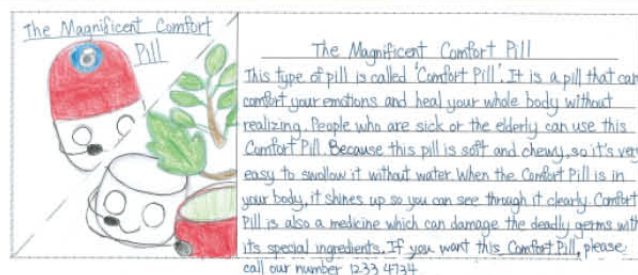 The Magnificent Comfort
Pill
The Magnificent Comfort Pill
This type of pill is called 'Comfort Pill'. It is a pill that can
comfort your emotions and heal your whole body without
realizing. People who are sick or the elderly can use this
Comfort Pill. Because this pill is soft and chewy, so it's very
easy to swollow it without water. When the Comfort Pill is in
your body, it shines up so you can see through it clearly. Comfort
Pill is also a medicine which can damage the deadly germs with
its special ingredients. If you want this Comfort Pill, please
call our number 1233 4734